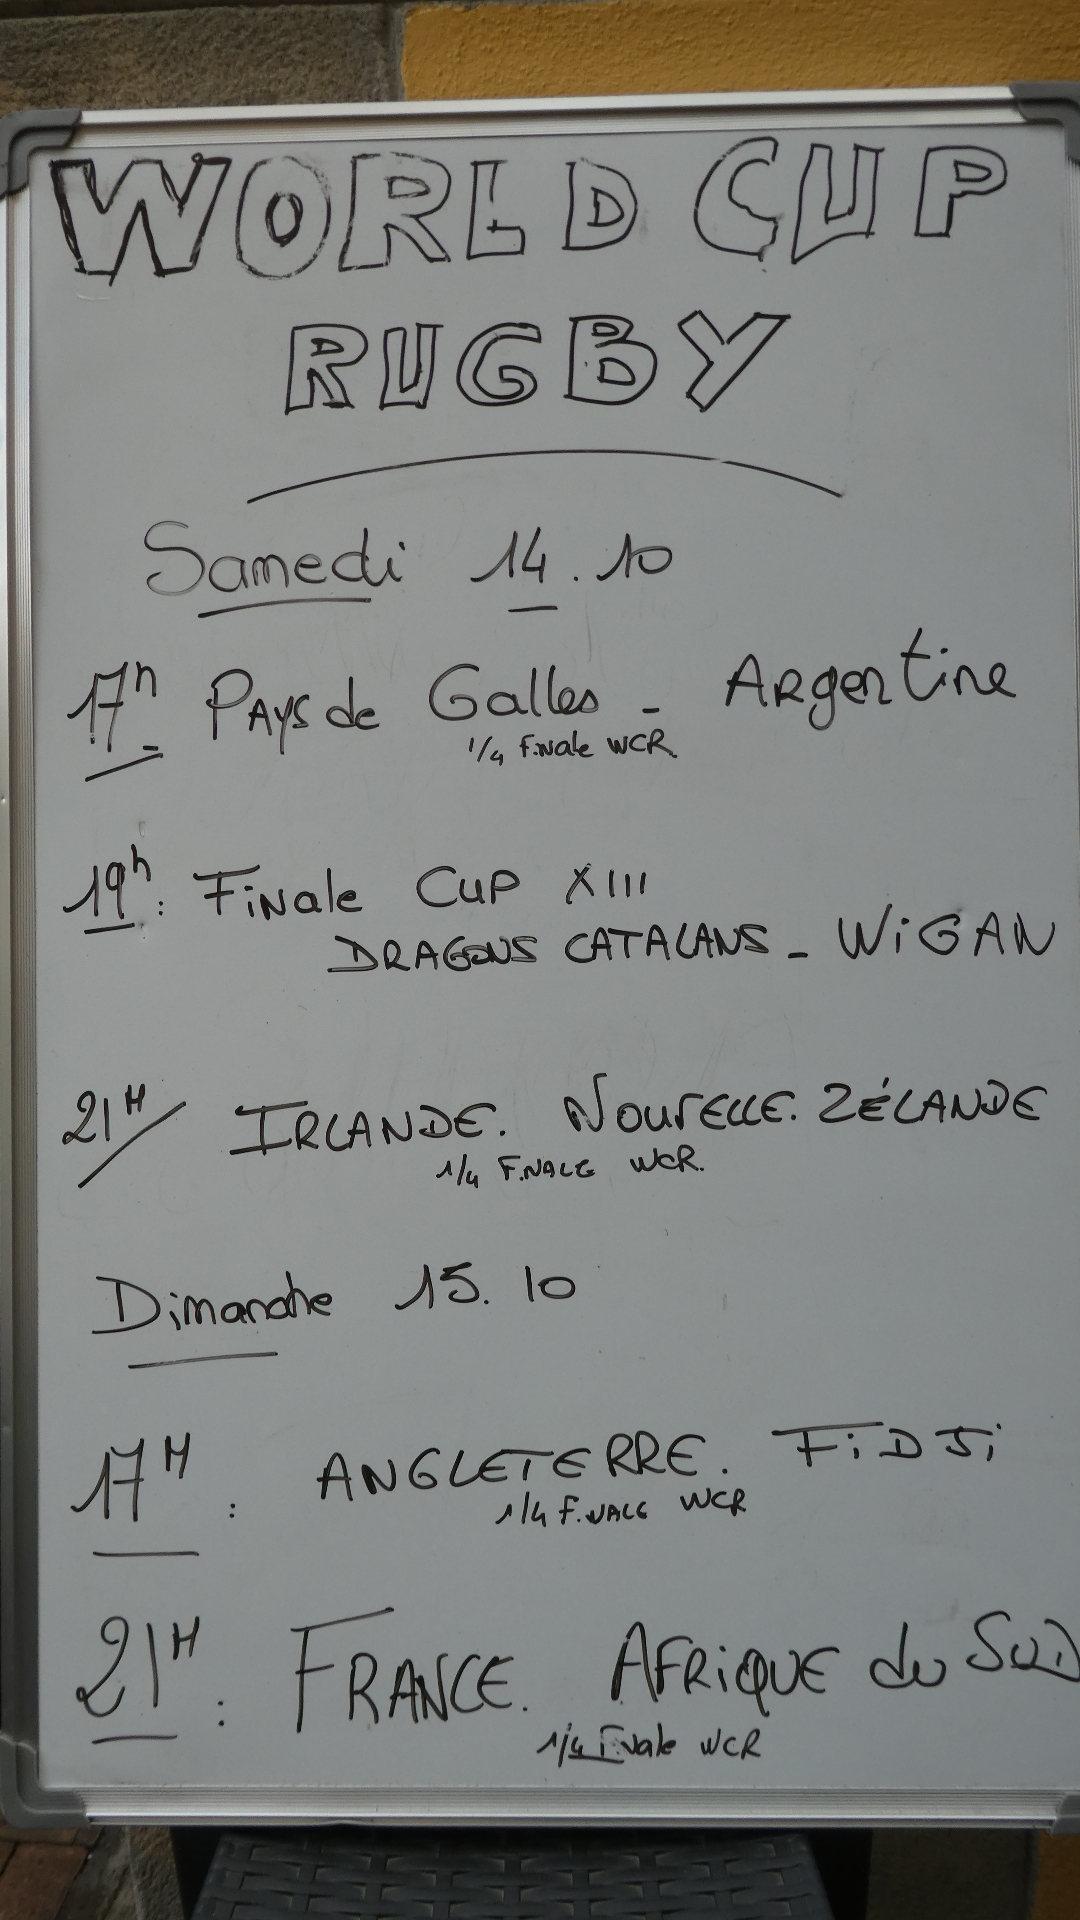 WORLD CUP
RUGBY
Samedi 14.10
17h Pays de Galles - Argentine
1/4 Finale WCR
19h: Finale Cup XIII
DRAGONS CATALANS - WiGAN
21H IRLANDE. NOUVELLE. ZÉLANDE
1/4 FINALE WCR.
Dimanche 15.10
17H: ANGLETERRE. FiDJi
1/4 FINALE WCR
21H: FRANCE. AFRiQUE du SUD
1/4 Finale WCR